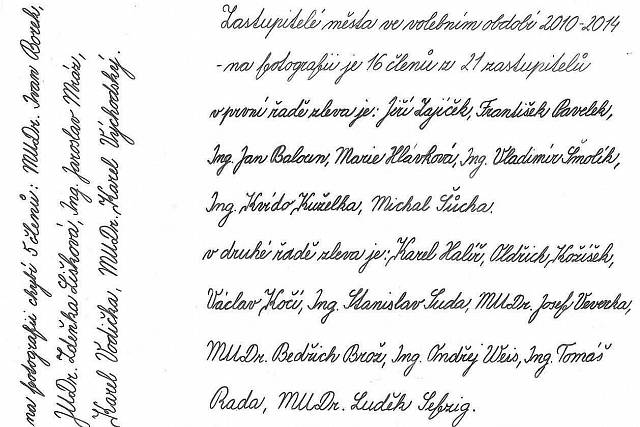 Zastupitelé města ve volebním období 2010-2014
- na fotografii je 16 členů z 21 zastupitelů
v první řadě zleva je: Jiří Zajíček, František Pavelek,
Ing. Jan Baloun, Marie Hlávková, Ing. Vladimír Smolík,
Ing. Kvido Kuželka, Michal Šůcha.
v druhé řadě zleva je: Karel Halíř, Oldřich Kožíšek,
Václav Kočí, Ing. Stanislav Suda, MUDr. Josef Veverka,
MUDr. Bedřich Brož, Ing. Ondřej Weis, Ing. Tomáš
Rada, MUDr. Luděk Sefzig.
na fotografii chybí 5 členů: MUDr. Ivan Borek,
JUDr. Zdeňka Lišková, Ing. Jaroslav Mráz,
Karel Vodička, MUDr. Karel Východský.